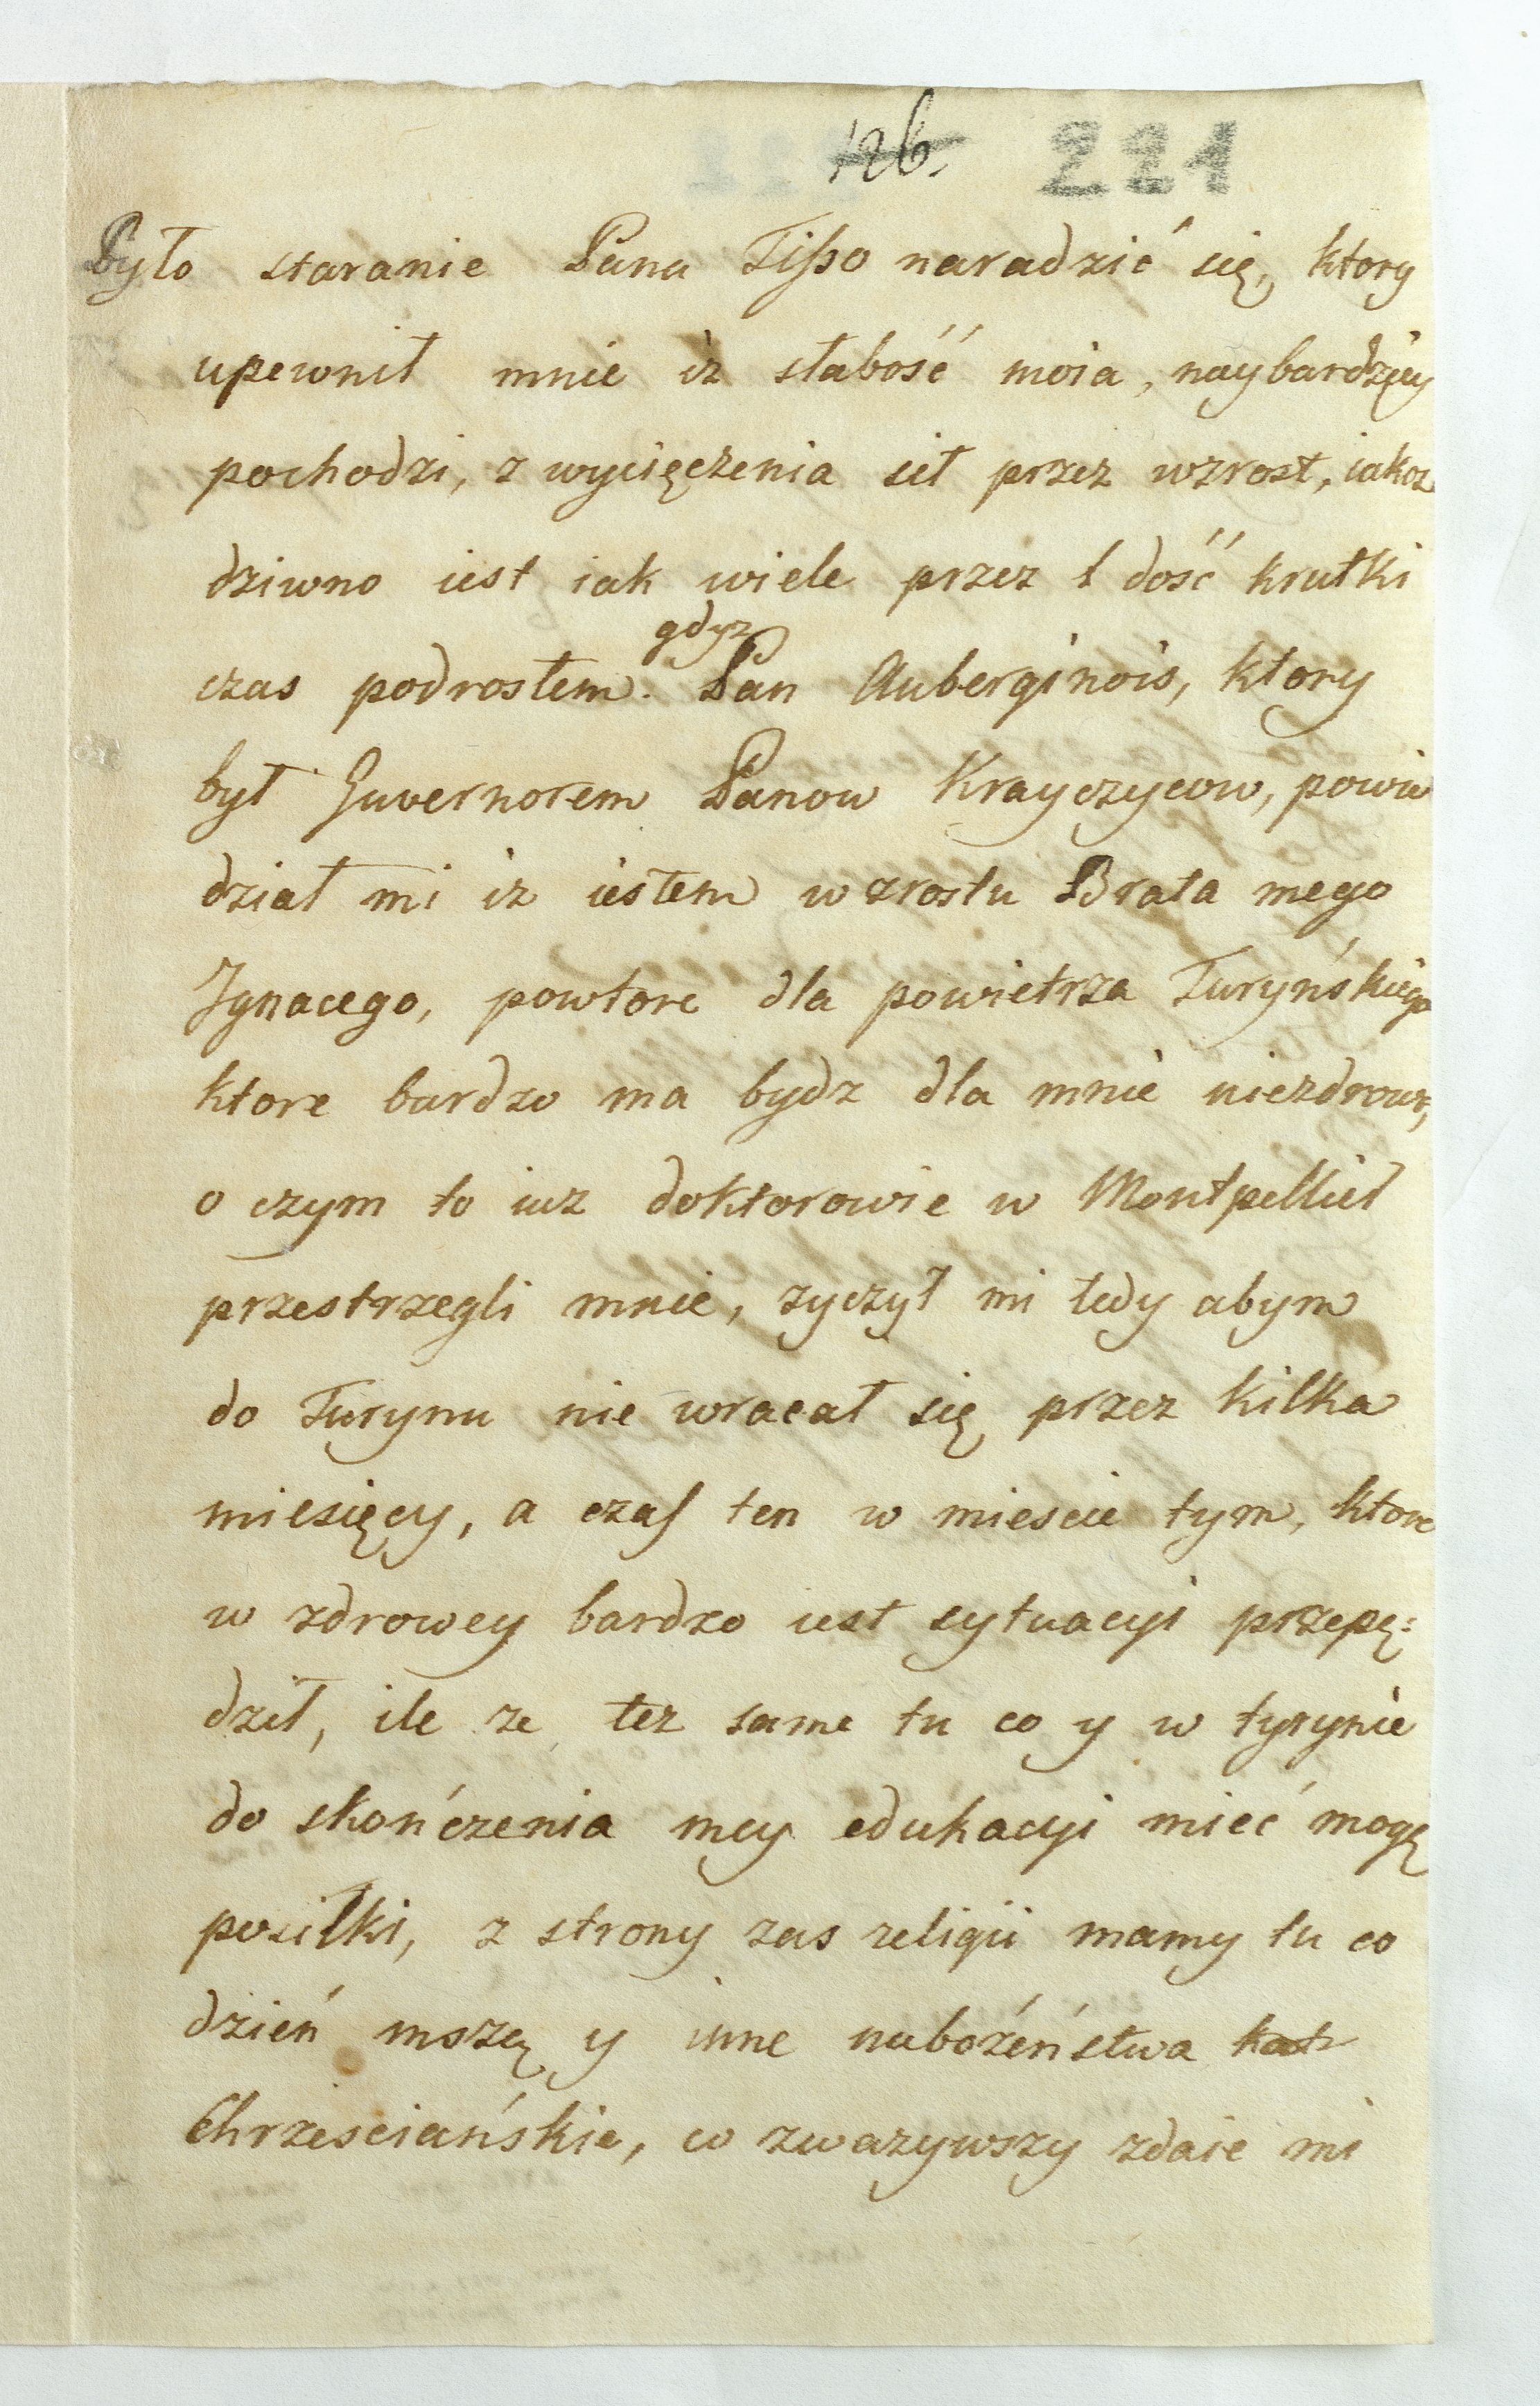 126. 221
Było staranie Pana Tißo naradzić się, ktory
upewnił mnie iz słabość moia, naybardziey
pochodzi, z wycięczenia sił przez wzrost, iakoz
dziwno iest iak wiele przez t dość krutki
gdyz
czas podrosłem. Pan Auberginois, ktory
był Guvernorem Panow Krayczycow, powie
dział mi iz iestem wzrostu Brata mego
Ignacego, powtore dla powietrza Turyńskiego
ktore bardzo ma bydz dla mnie niezdrowe,
o czym to iuz doktorowie w Montpellier
przestrzegli mnie, zyczył mi tedy abym
do Turynu nie wracał się przez kilka
miesięcy, a czas ten w miescie tym, ktore
w zdrowey bardzo iest sytuacyi przepę:
dził, ile ze tez same tu co y w tyrynie
do skończenia mey edukacyi mieć mogę
posiłki, z strony zas religii mamy tu co
dzień mszę y inne nabożeństwa kat
Chrzesciańskie, co zwazywszy zdaie mi